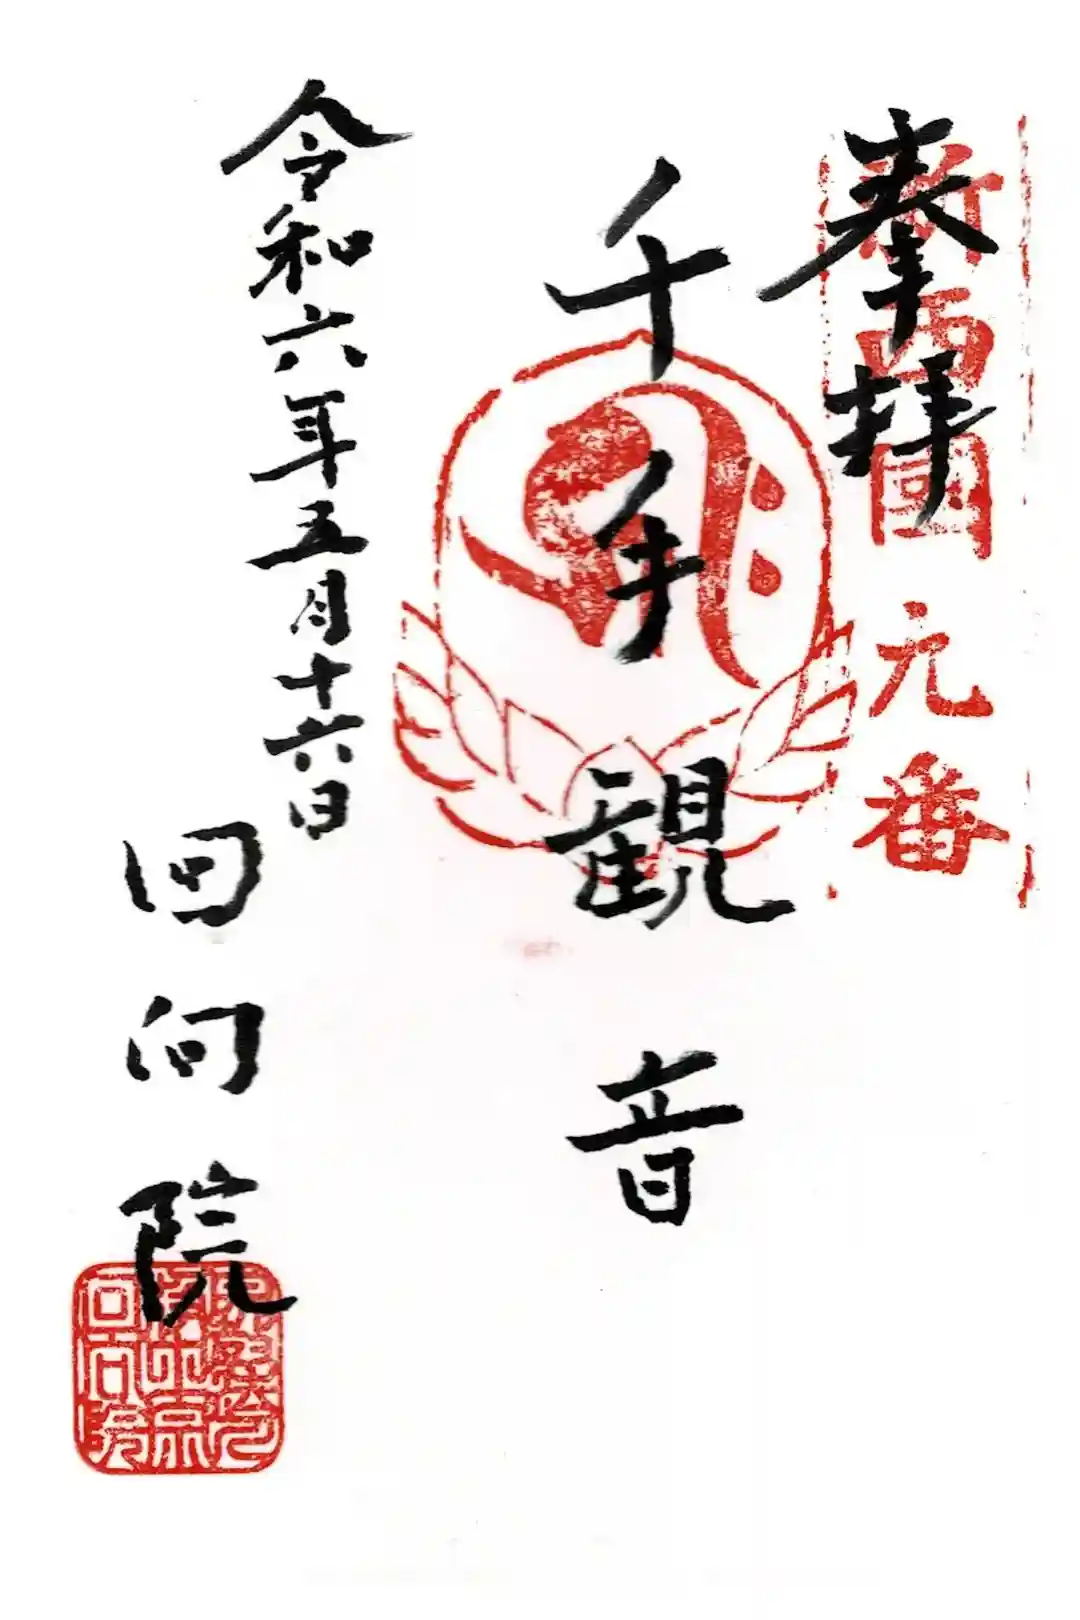 奉拝
新西國元番
千手觀音
令和六年五月十六日
回向院